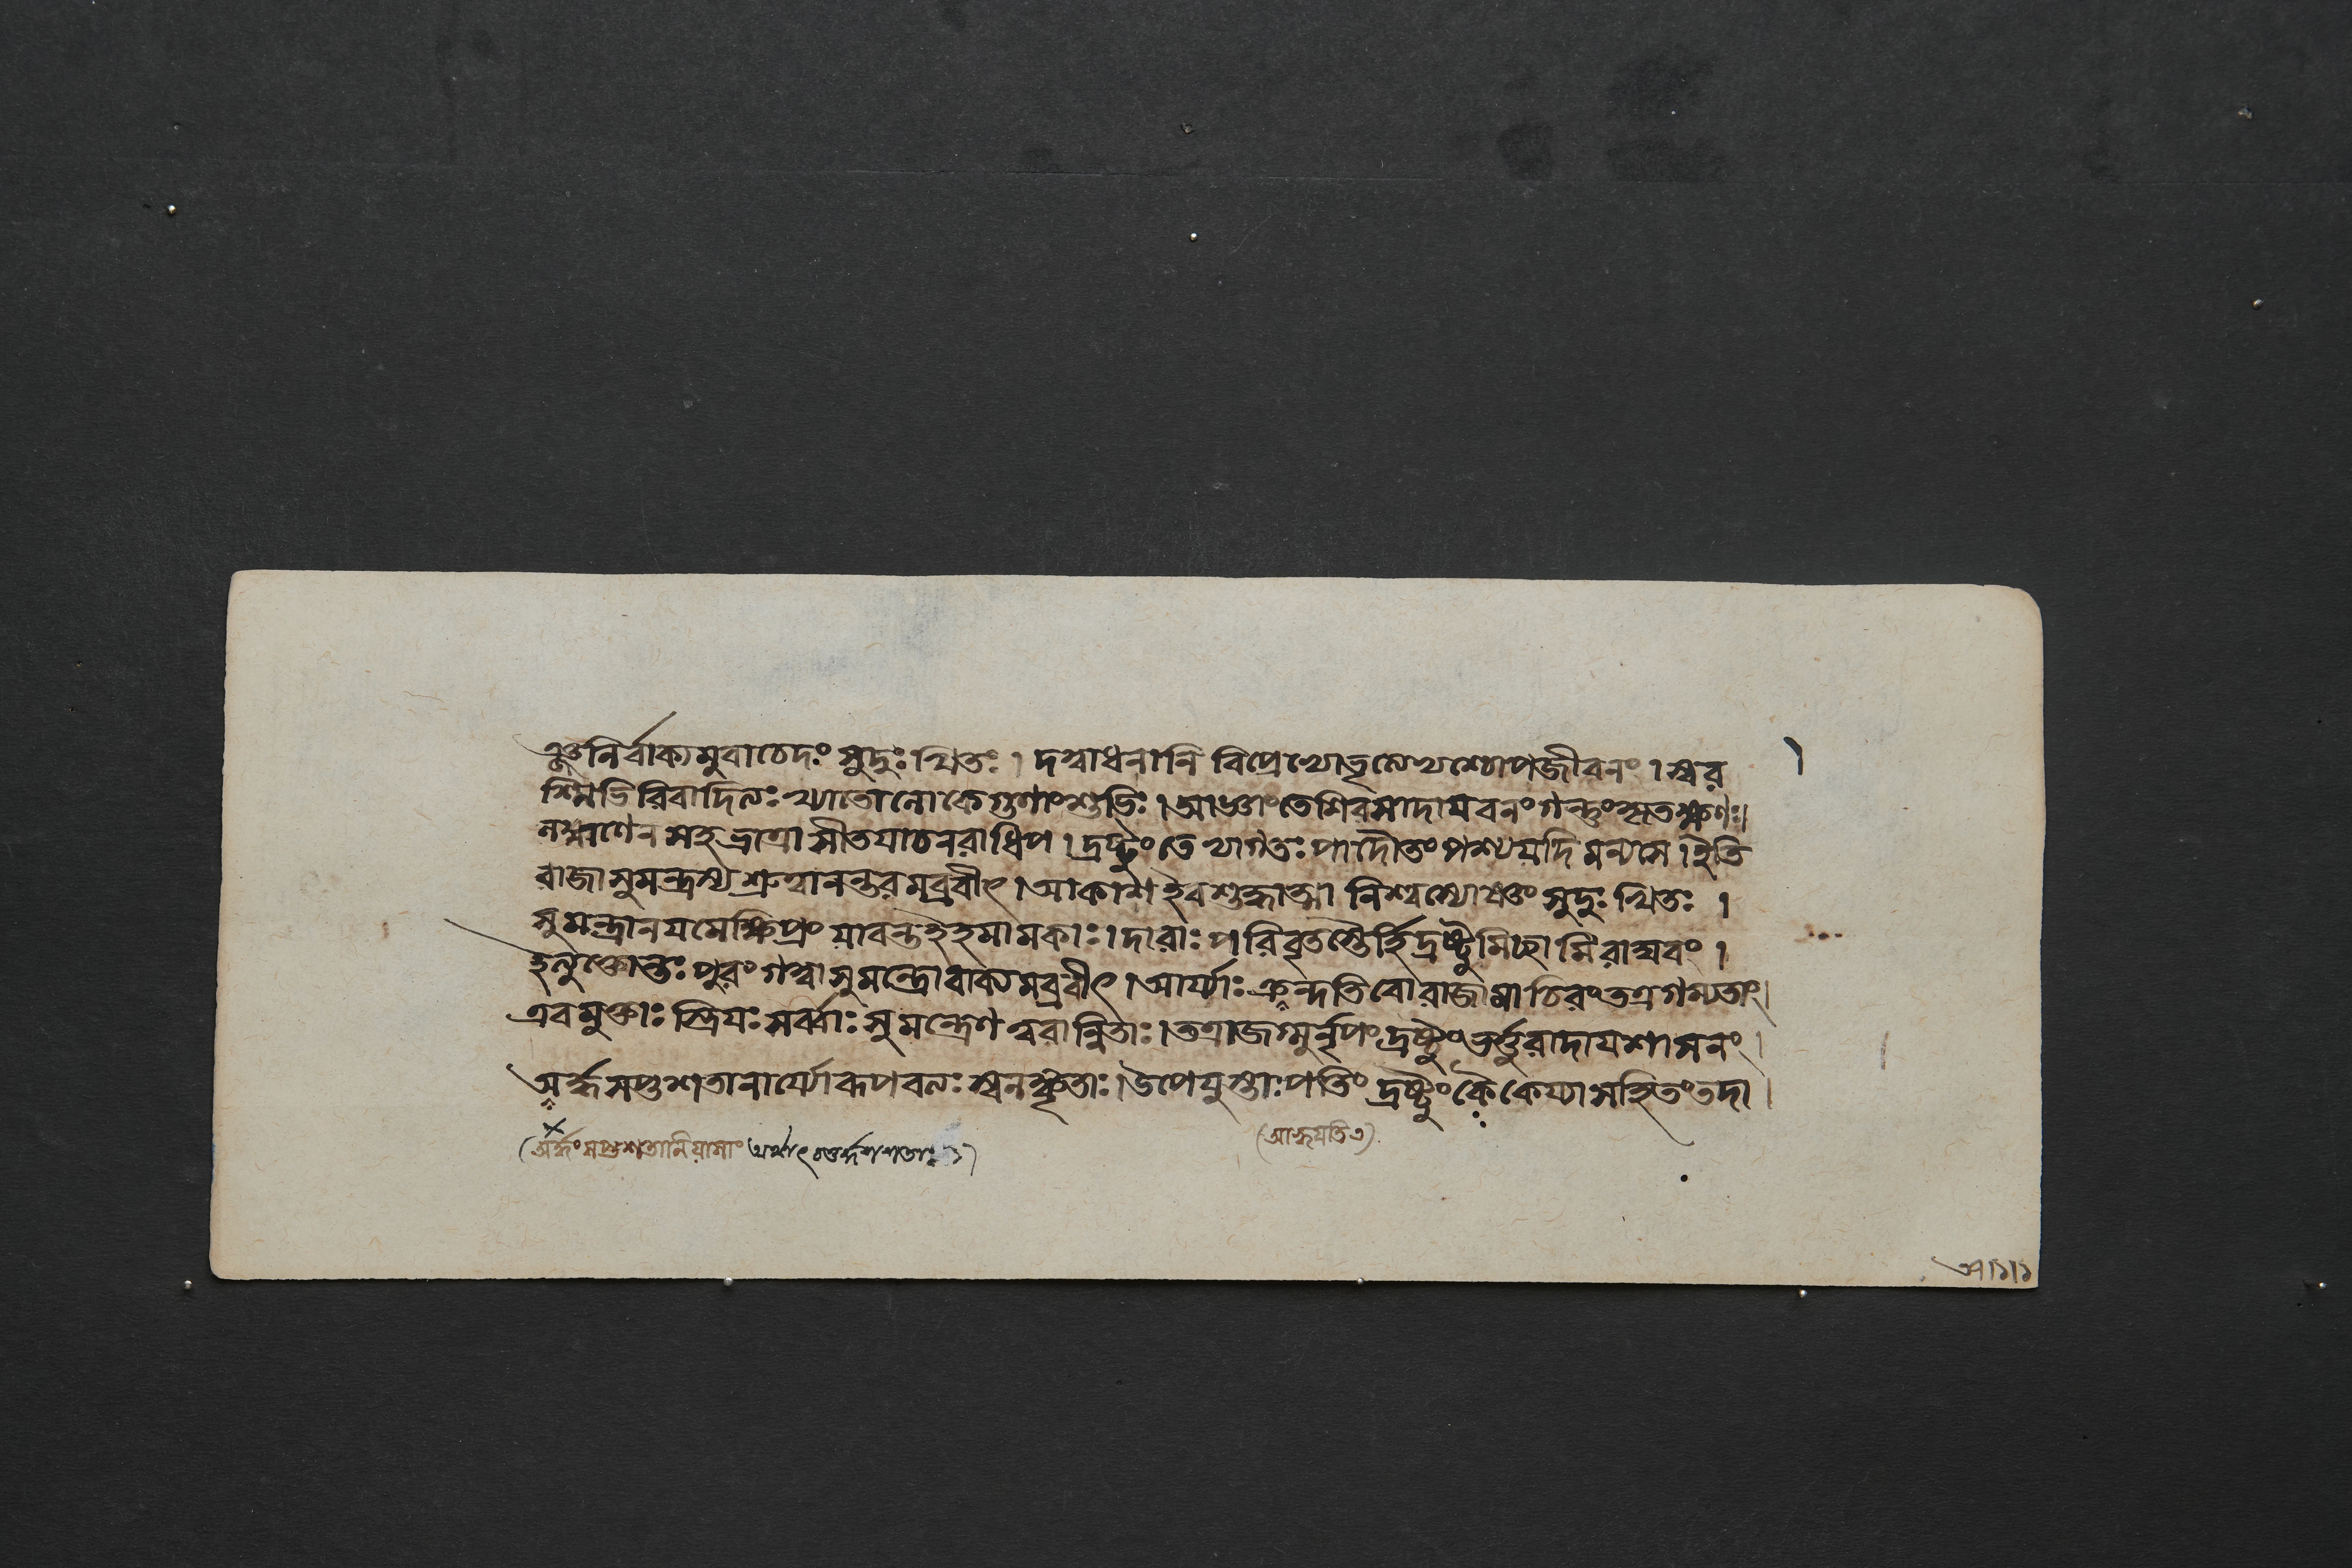 ঞ্জনির্ব্বাক্যমুবাচেদং সুদুঃখিতঃ । দত্বাধনানি বিপ্রেভ্যোভৃত্যেভ্যশ্চোপজীবনং । স্বর
শ্মিভিরিবাদিত্যঃ খ্যাতোলোকেগুণাংশুভিঃ । আজ্ঞাংতেশিরসাদায়বনংগন্তুংকৃতক্ষণঃ।
লক্ষ্মণেন সহভ্রাত্রা সীতয়াচনরাধিপ । দ্রষ্টুংতে খাগতঃ পাদৌতং পশ্যযদি মন্যসে । ইতি
রাজা সুমন্ত্রস্য শ্রুত্বানন্তরমব্রবীৎ । আকাশইবশুদ্ধাত্মা নিশ্বস্যোষ্ণং সুদুঃখিতঃ ।
সুমন্ত্রানয়মেক্ষিপ্রং যাবন্তইহমামকাঃ । দারাঃ পরিবৃতস্তৈর্হিদ্রষ্টুমিচ্ছামিরাঘবং ।
ইত্যুক্তোন্তঃ পুরংগত্বাসুমন্ত্রোবাক্যমব্রবীৎ । আর্য্যাঃ ক্রন্দতিবোরাজামাচিরংতত্রগম্যতাং।
এবমুক্তাঃ স্ত্রিয়ঃ সর্ব্বাঃ সুমন্ত্রেণত্বরান্বিতাঃ । তত্রাজগ্মুর্নৃপংদ্রষ্টুংভর্ত্তুরাদায়শাসনং ।
অর্দ্ধসপ্তশতানার্য্যোরূপবত্যঃ স্বলঙ্কৃতাঃ । উপেযুস্তাঃ পতিং দ্রষ্টুংকৈকেয্যাসহিতংতদা ।
(অর্দ্ধংসপ্তশতানিযাসাং অর্থাৎ
(আহ্বয়তিএ)